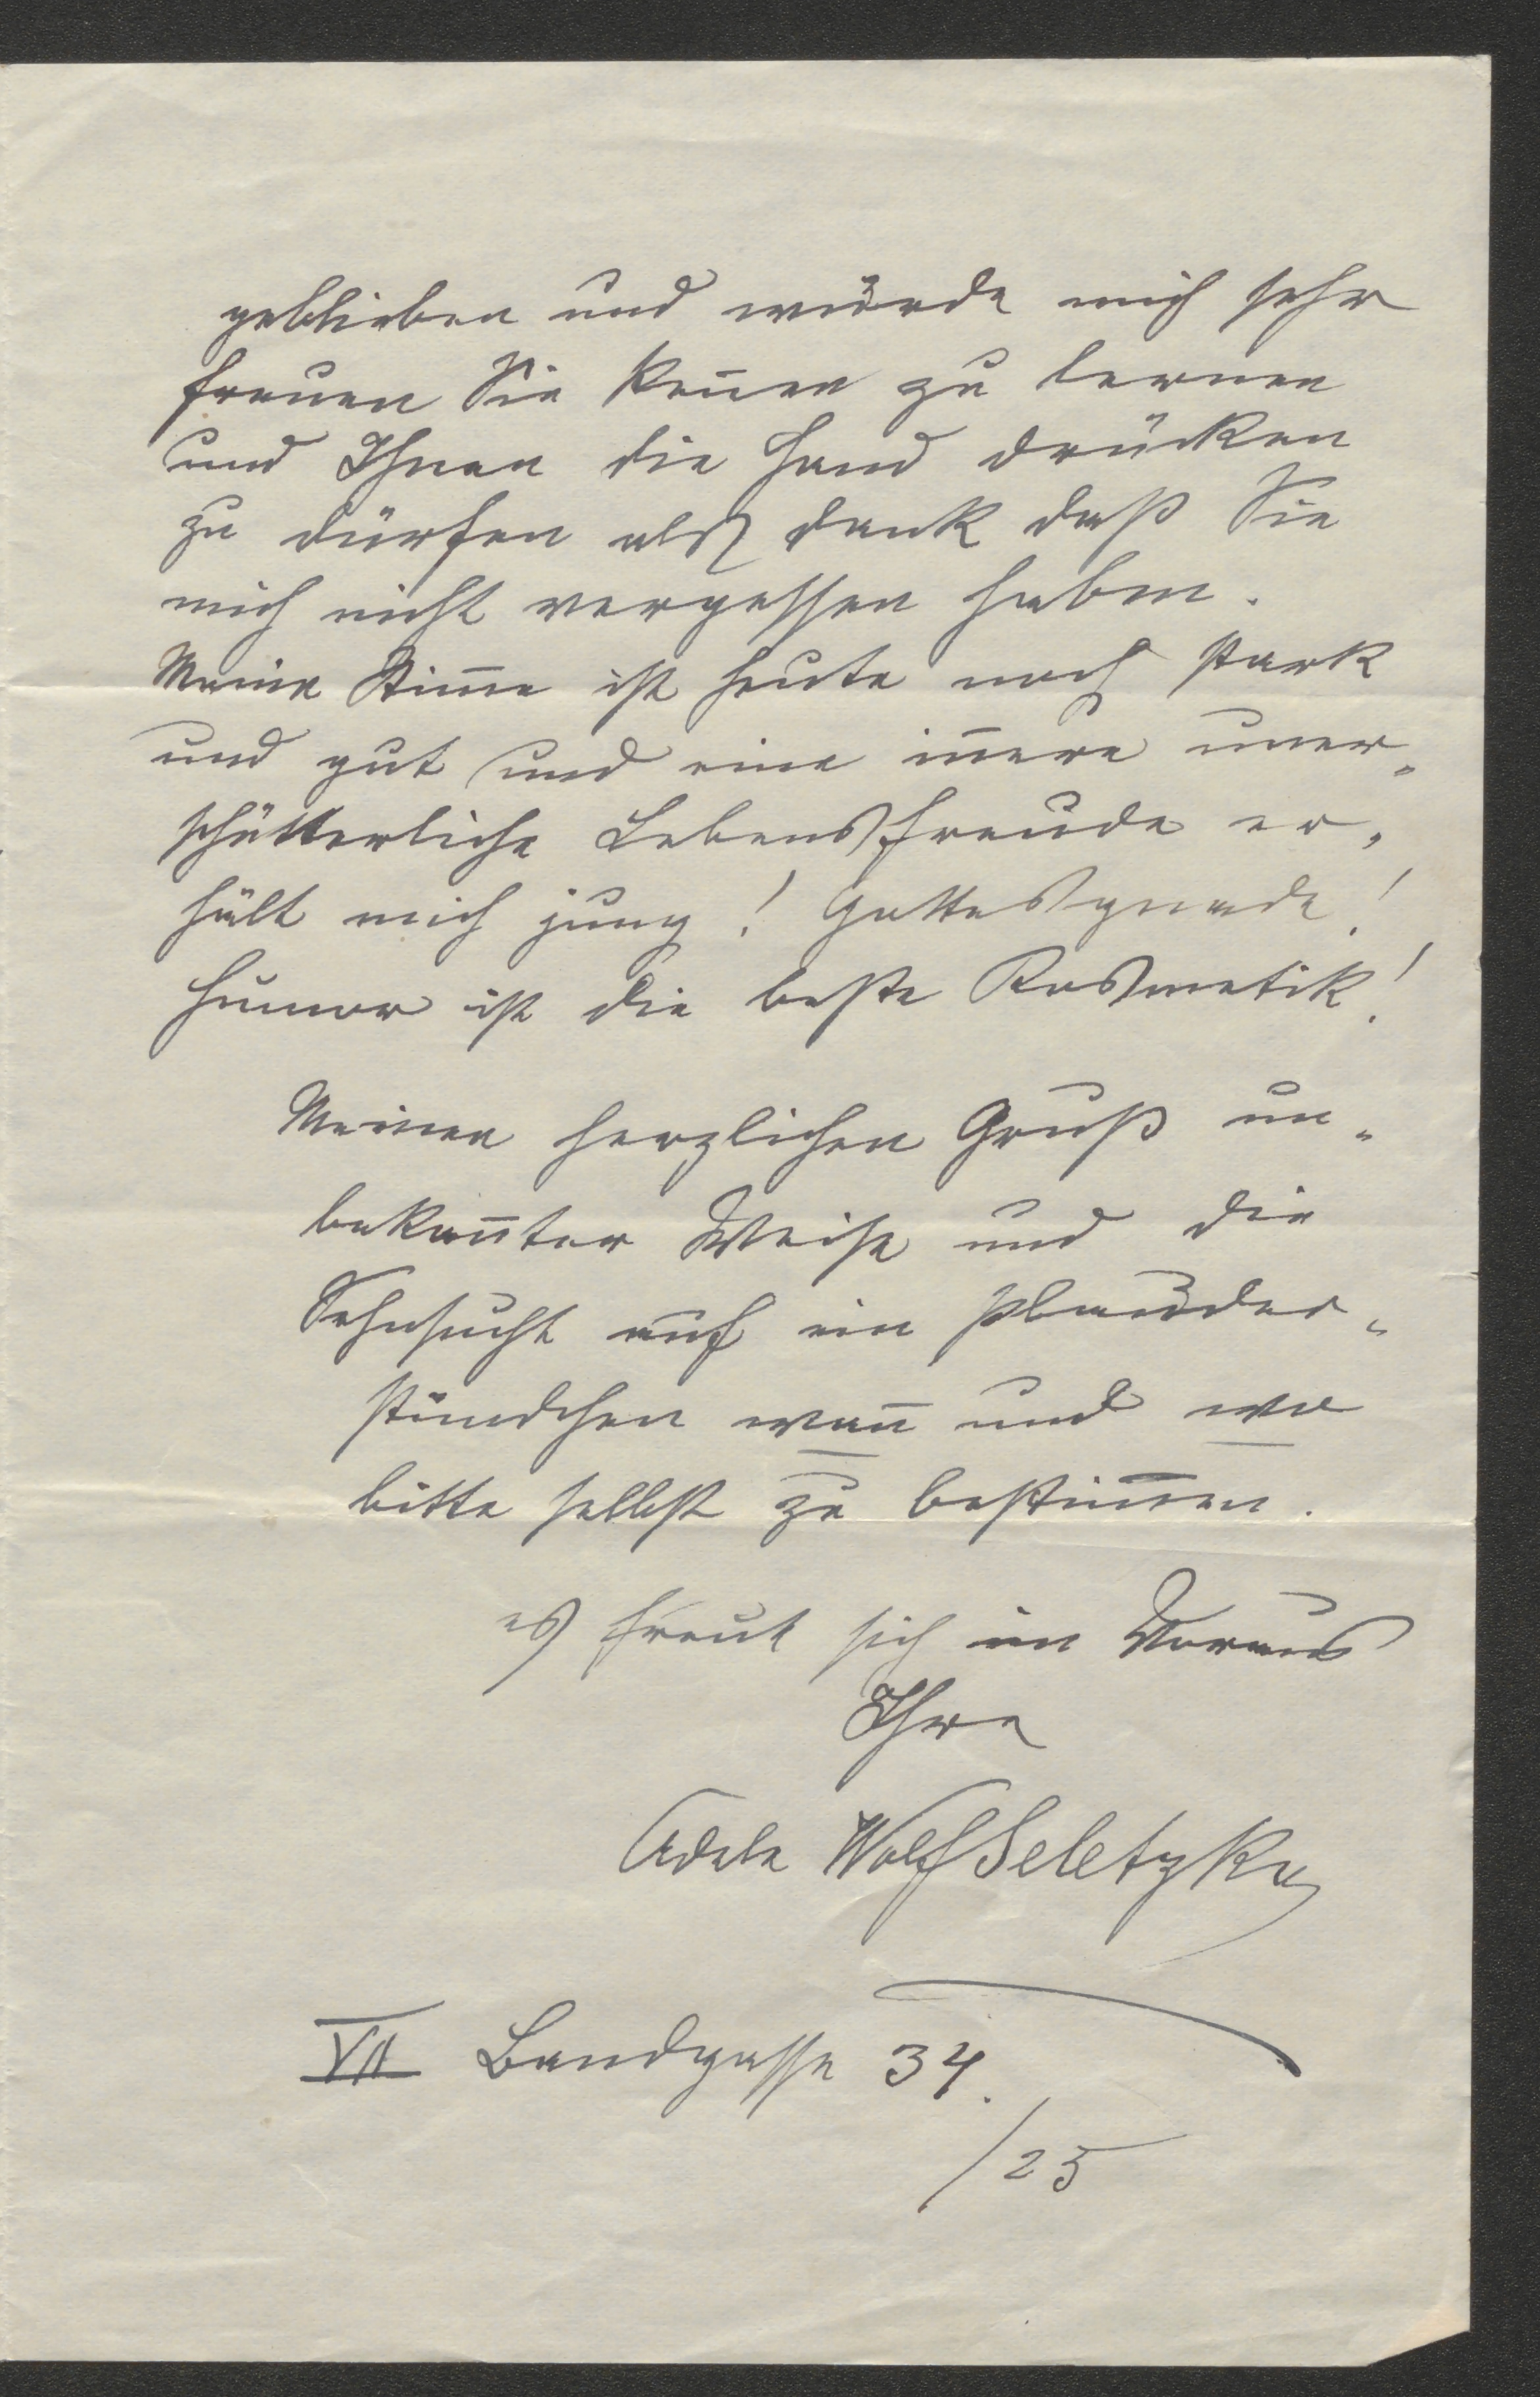 geblieben und würde mich sehr
freuen Sie keñen zu lernen
und Ihnen die Hand drücken
zu dürfen als Dank daß Sie
mich nicht vergessen haben.
Meine Stim̄e ist heute noch stark
und gut und eine iñere uner-
schütterliche Lebensfreude er-
hält mich jung! Gottesgnade!
Humor ist die beste Kosmetik!
Meinen herzlichen Gruß un-
bekañter Weise und die
Sehnsucht auf ein Plauder-
stündchen wañ und wo
bitte selbst zu bestim̄en.
es freut sich im Voraus
Ihre
Adele Wolf Seletzky
VII Bandgasse 34.
/25